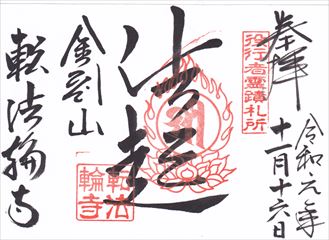 奉拝
令和元年
十一月十六日
役行者霊蹟札所
法起
金剛山
転法輪寺
転法輪寺